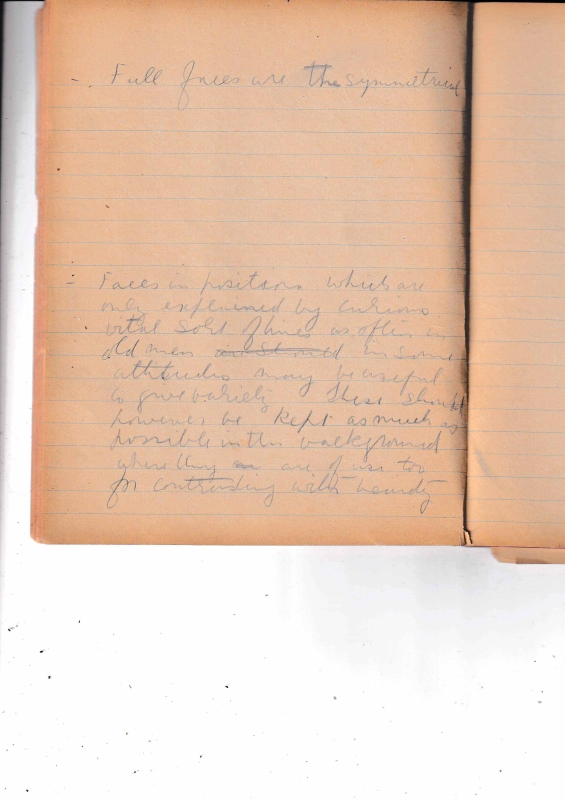 - Full faces are the symmetrical
- Faces in positions which are
only explained by curious
vital sort of lines as often in
old men in some
attitudes may be useful
to give variety These should
however be kept as much as
possible in the background
where they are of use too
for contrasting with beauty